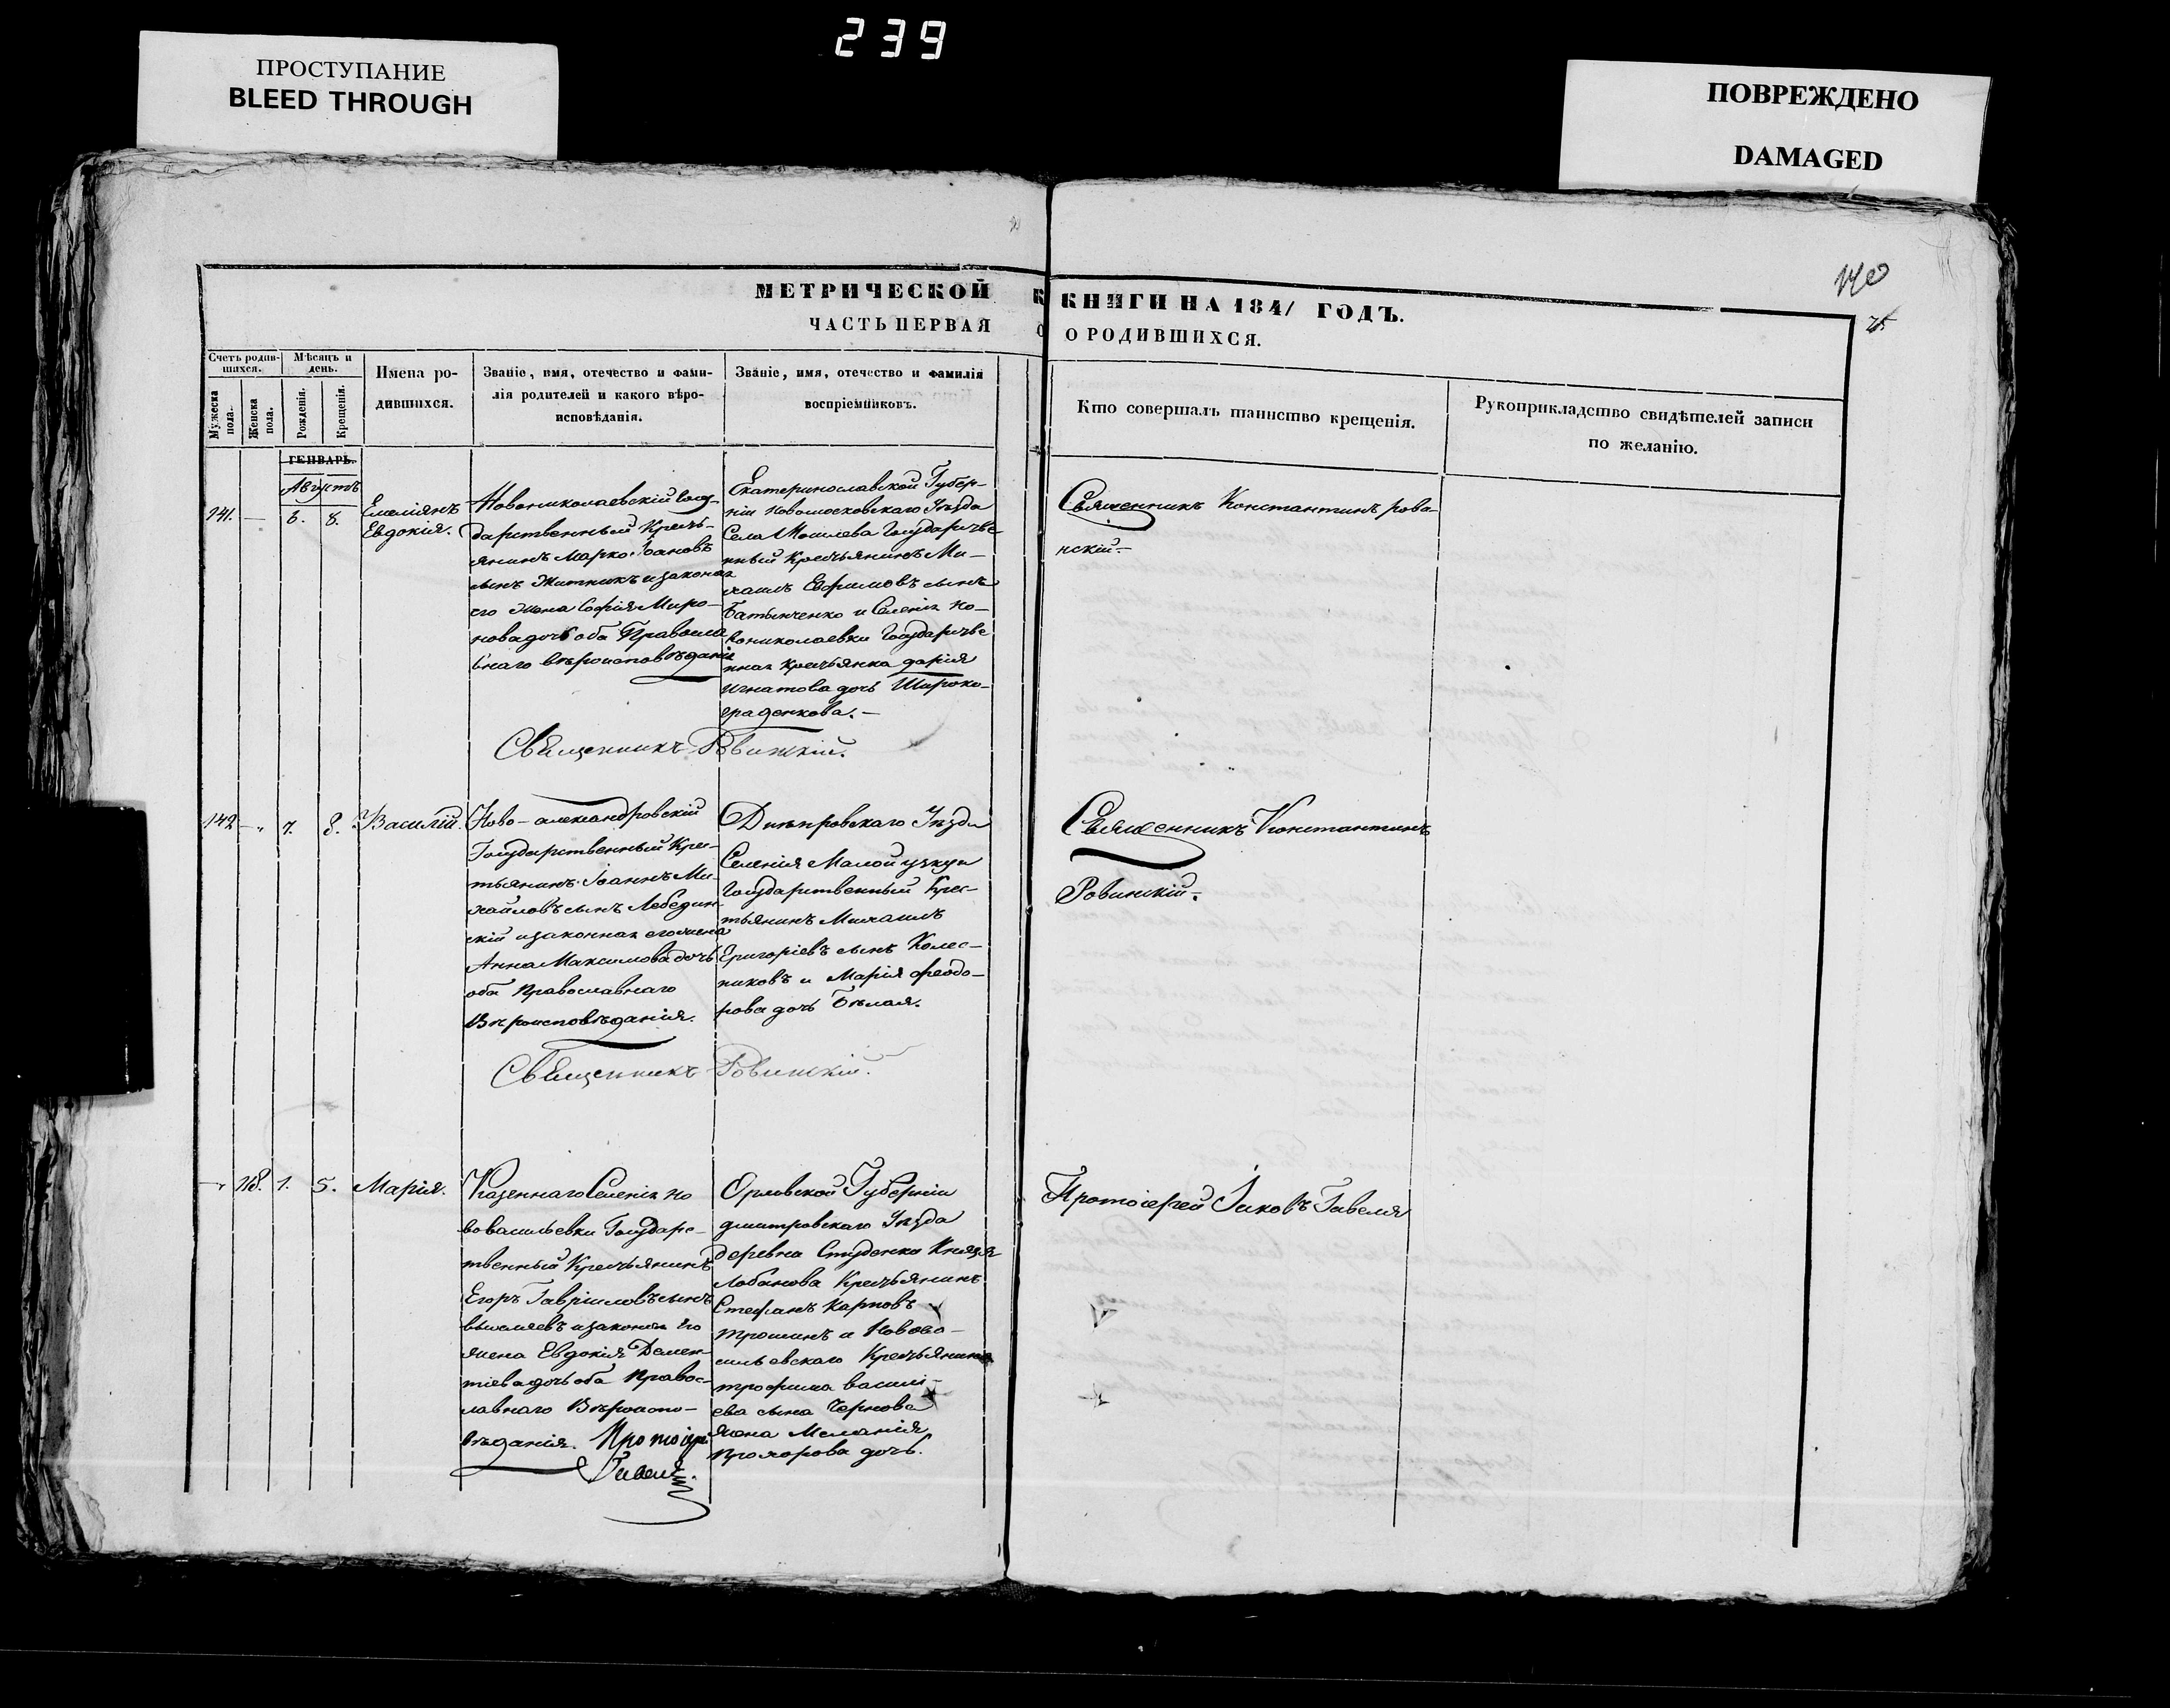 239
ПРОСТУПАНИЕ
BLEED THROUGH
ПОВРЕЖДЕНО
DAMAGED
140
МЕТРИЧЕСКОЙ КНИГИ НА 1841 ГОДЪ.
ЧАСТЬ ПЕРВАЯ О РОДИВШИХСЯ.
Счетъ родив-
шихся.
Мѣсяцъ и
день.
Мужеска
пола.
Женска
пола.
Рожденія.
Крещенія.
Имена ро-
дившихся.
Званіе, имя, отечество и фами-
лія родителей и какого вѣро-
исповѣданія.
Званіе, имя, отечество и фамилія
воспріемниковъ.
Кто совершалъ таинство крещенія.
Рукоприкладство свидѣтелей записи
по желанію.
ГЕНВАРЬ.
Августъ
141. — 8. 8.
Емеліянъ
Евдокія.
Новониколаевскій Госу-
дарственный Кресть-
янинъ Марко Іоановъ
сынъ Житникъ и законая
его жена Софія Миро-
нова дочь оба Православ
наго вѣроисповѣданія
Екатеринославской Губер-
ніи Новомосковскаго Уѣзда
Села Могилева Государстве
нный Крестьянинъ Ми-
хаилъ Евфимовъ сынъ
и Селенія Но-
вониколаевки Государстве
нная Крестьянка Дарія
Игнатова дочь Широко-
граденкова.—
Священникъ Константинъ Рови-
нскій.—
Священникъ Ровинскій.
142 — 7. 8. Василій.
Ново-александровскій
Государственный Крес-
тьянинъ Іоаннъ Ми-
хайловъ сынъ Лебедин-
скій и законная его жена
Анна Максимова дочь
оба Православнаго
Вѣроисповѣданія.
Днѣпровскаго Уѣзда
Селенія Малой
Государственный Крес-
тьянинъ Михаилъ
Григоріевъ сынъ Колес-
никовъ и Марія Феодо-
рова дочь Бѣлая.
Священникъ Константинъ
Ровинскій.—
Священникъ Ровинскій.
118. 1. 5. Марія.
Казеннаго Селенія Но
вовасильевки Государс-
твенный Крестьянинъ
Егоръ Гавріиловъ сынъ
и законая его
жена Евдокія Демен-
тіева дочь оба Правос-
лавнаго Вѣроиспо-
вѣданія. Протоіерей
Гавеля.
Орловской Губерніи
Дмитровскаго Уѣзда
деревни Студенки Князя
Лобанова Крестьянинъ
Стефанъ Карповъ
Трошинъ и Нововa-
сильевскаго Крестьянина
Трофима Васили-
ева сына Чернова
жена Меланія
Прохорова дочь.
Протоіерей Іаковъ Гавеля